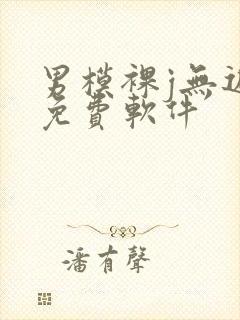 男模裸j無
免費軟件
潘有聲